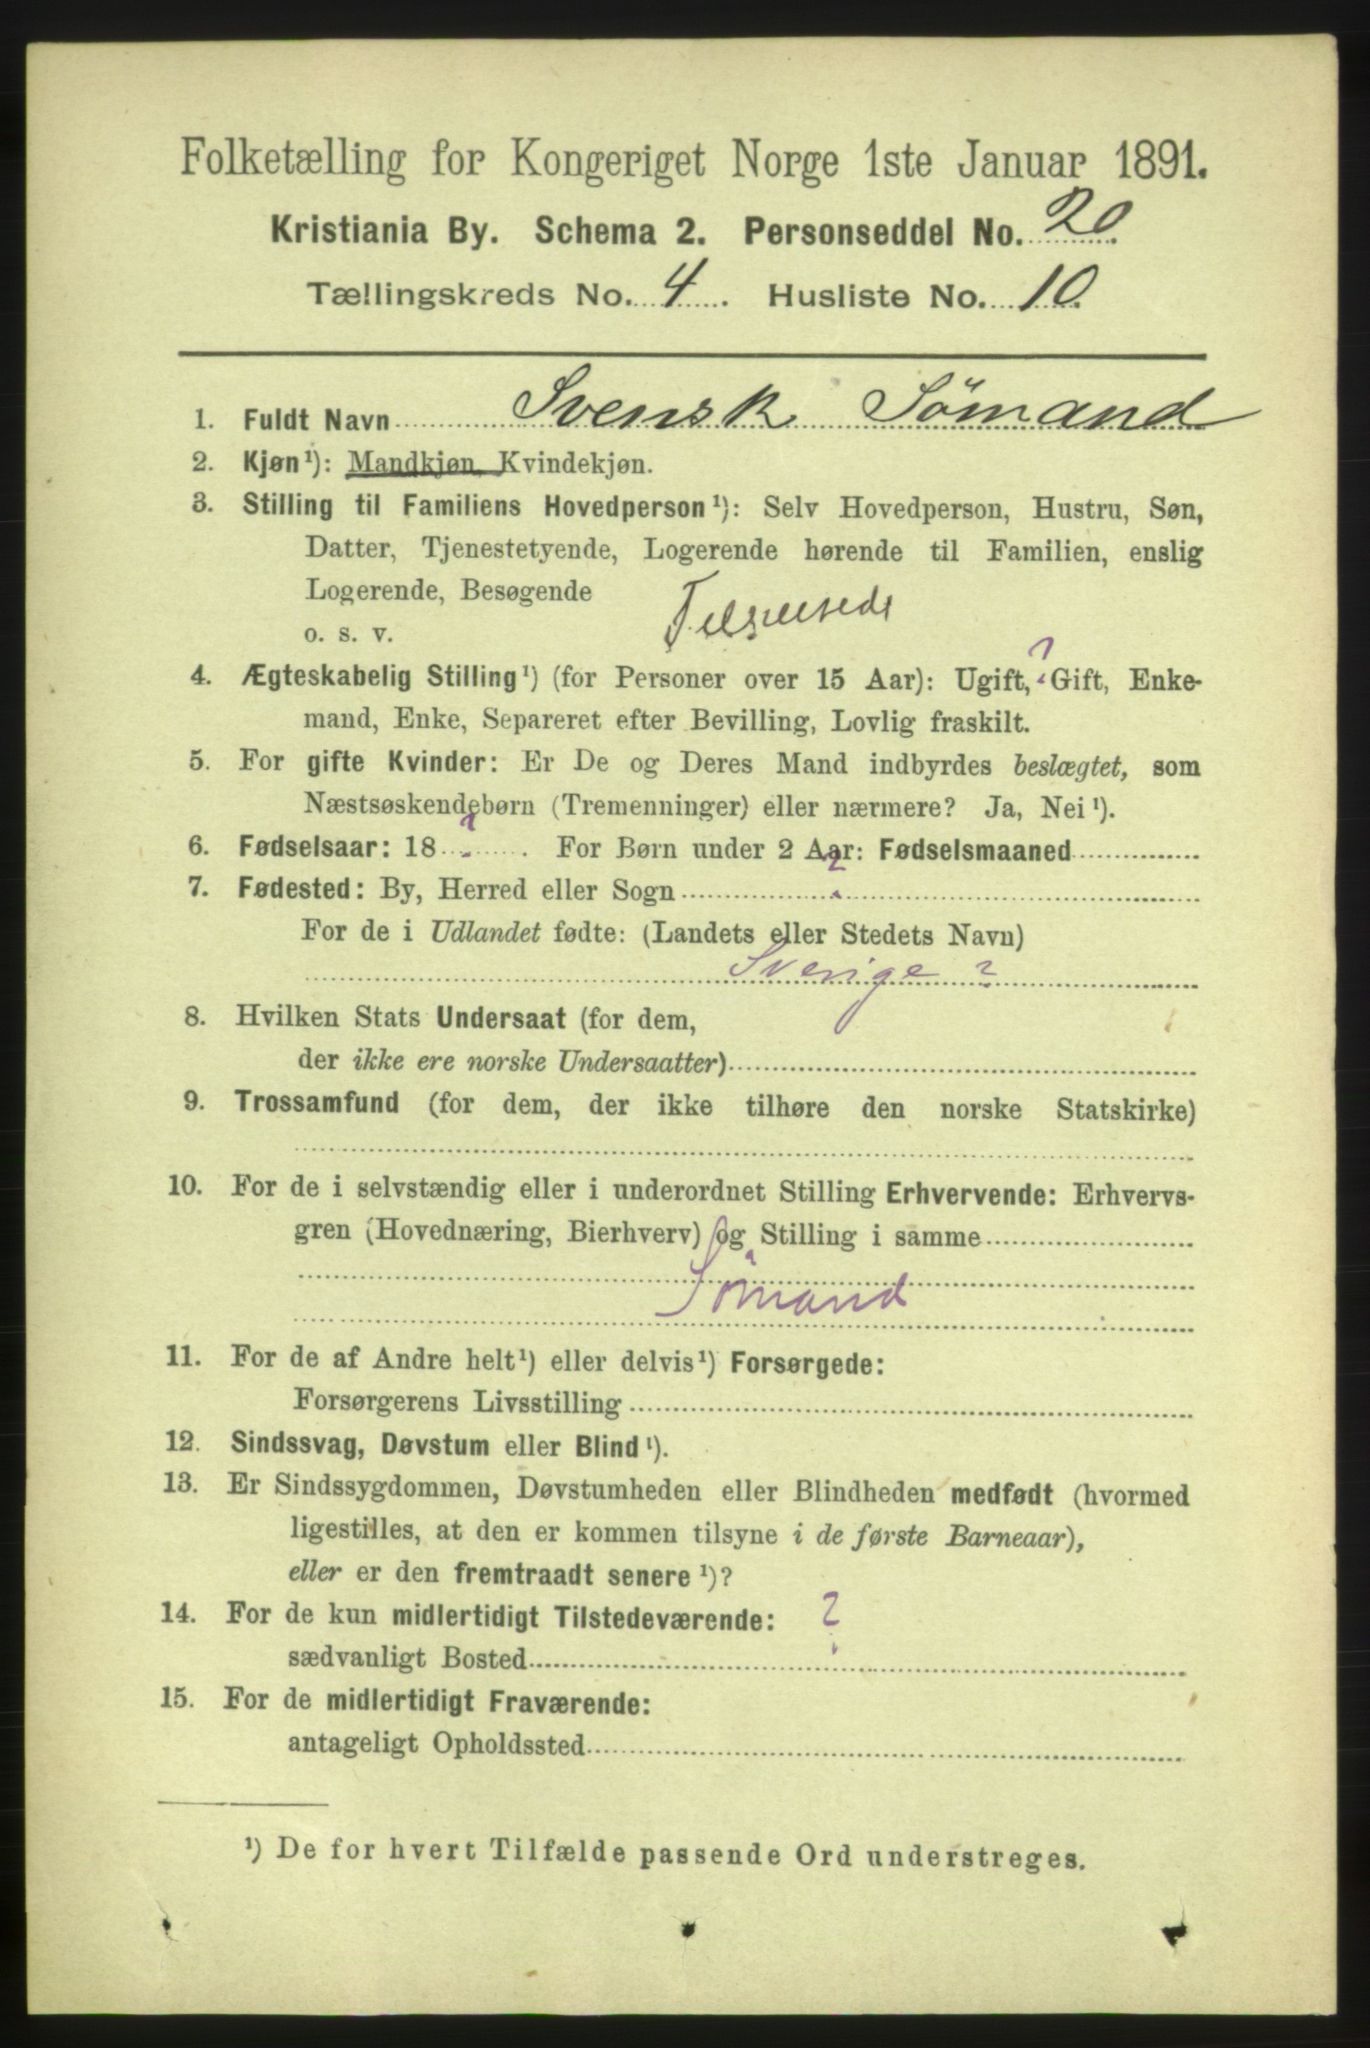 Folketælling for Kongeriget Norge 1ste Januar 1891.
Kristiania By. Schema 2. Personseddel No. 20
Tællingskreds No. 4. Husliste No. 10.
1. Fuldt Navn Svensk Sömand
2. Kjøn¹): Mandkjøn, Kvindekjøn.
3. Stilling til Familiens Hovedperson¹): Selv Hovedperson, Hustru, Søn,
Datter, Tjenestetyende, Logerende hørende til Familien, enslig
Logerende, Besøgende
o. s. v.
4. Ægteskabelig Stilling¹) (for Personer over 15 Aar): Ugift, ? Gift, Enke-
mand, Enke, Separeret efter Bevilling, Lovlig fraskilt.
5. For gifte Kvinder: Er De og Deres Mand indbyrdes beslægtet, som
Næstsøskendebørn (Tremenninger) eller nærmere? Ja, Nei¹).
6. Fødselsaar: 18 ? . For Børn under 2 Aar: Fødselsmaaned
7. Fødested: By, Herred eller Sogn ?
For de i Udlandet fødte: (Landets eller Stedets Navn)
Sverige ?
8. Hvilken Stats Undersaat (for dem,
der ikke ere norske Undersaatter)
9. Trossamfund (for dem, der ikke tilhøre den norske Statskirke)
10. For de i selvstændig eller i underordnet Stilling Erhvervende: Erhvervs-
gren (Hovednæring, Bierhverv) og Stilling i samme
Sömand
11. For de af Andre helt¹) eller delvis¹) Forsørgede:
Forsørgerens Livsstilling
12. Sindssvag, Døvstum eller Blind¹).
13. Er Sindssygdommen, Døvstumheden eller Blindheden medfødt (hvormed
ligestilles, at den er kommen tilsyne i de første Barneaar),
eller er den fremtraadt senere¹)?
14. For de kun midlertidigt Tilstedeværende: ?
sædvanligt Bosted
15. For de midlertidigt Fraværende:
antageligt Opholdssted
¹) De for hvert Tilfælde passende Ord understreges.